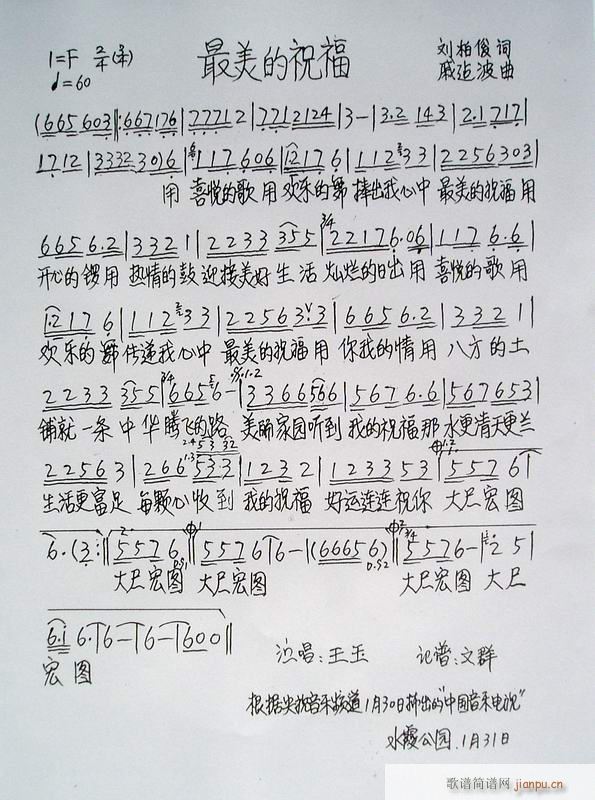 1=F 2/4(3/4)
♩=60
最美的祝福
刘柏俊 词
戚建波 曲
(665 603‖:667176|77712|7712124|3-|3.2 143|2.1717|
1712|3332 30)6|117606|1217 6|112 33|2256303|
用 喜悦的歌 用 欢乐的舞 捧出我心中 最美的祝福 用
665 6.2|332 1|2233 355|22176.06|117 6.6|
开心的锣 用 热情的鼓 迎接美好 生 活 灿烂的日出 用 喜悦的歌 用
1217 6|112 33|22563 3|665 6.2|332 1|
欢乐的 舞 传递我心中 最美的祝福 用 你我的情 用 八方的土
2233 355|6656-|3366566|567 6.6|567653|
铺就一条 中 华 腾飞的路 美丽家园听到 我的祝福 那 水更清天更兰
22563|266533|1232|123353|5576|
生活更富足 每颗心收到 我的祝福 好运连连祝你 大尺宏图
6.(3:‖5576|557676-|(66656)|5576-|2 5|
大尺宏图 大尺宏图 大尺宏图 大尺
6.1 6.|6-|6-|600‖
宏 图
演唱:王玉 记谱:文群
根据央视音乐频道1月30日播出的"中国音乐电视"
水霞公园.1月31日
歌谱简谱网 jianpu.cn